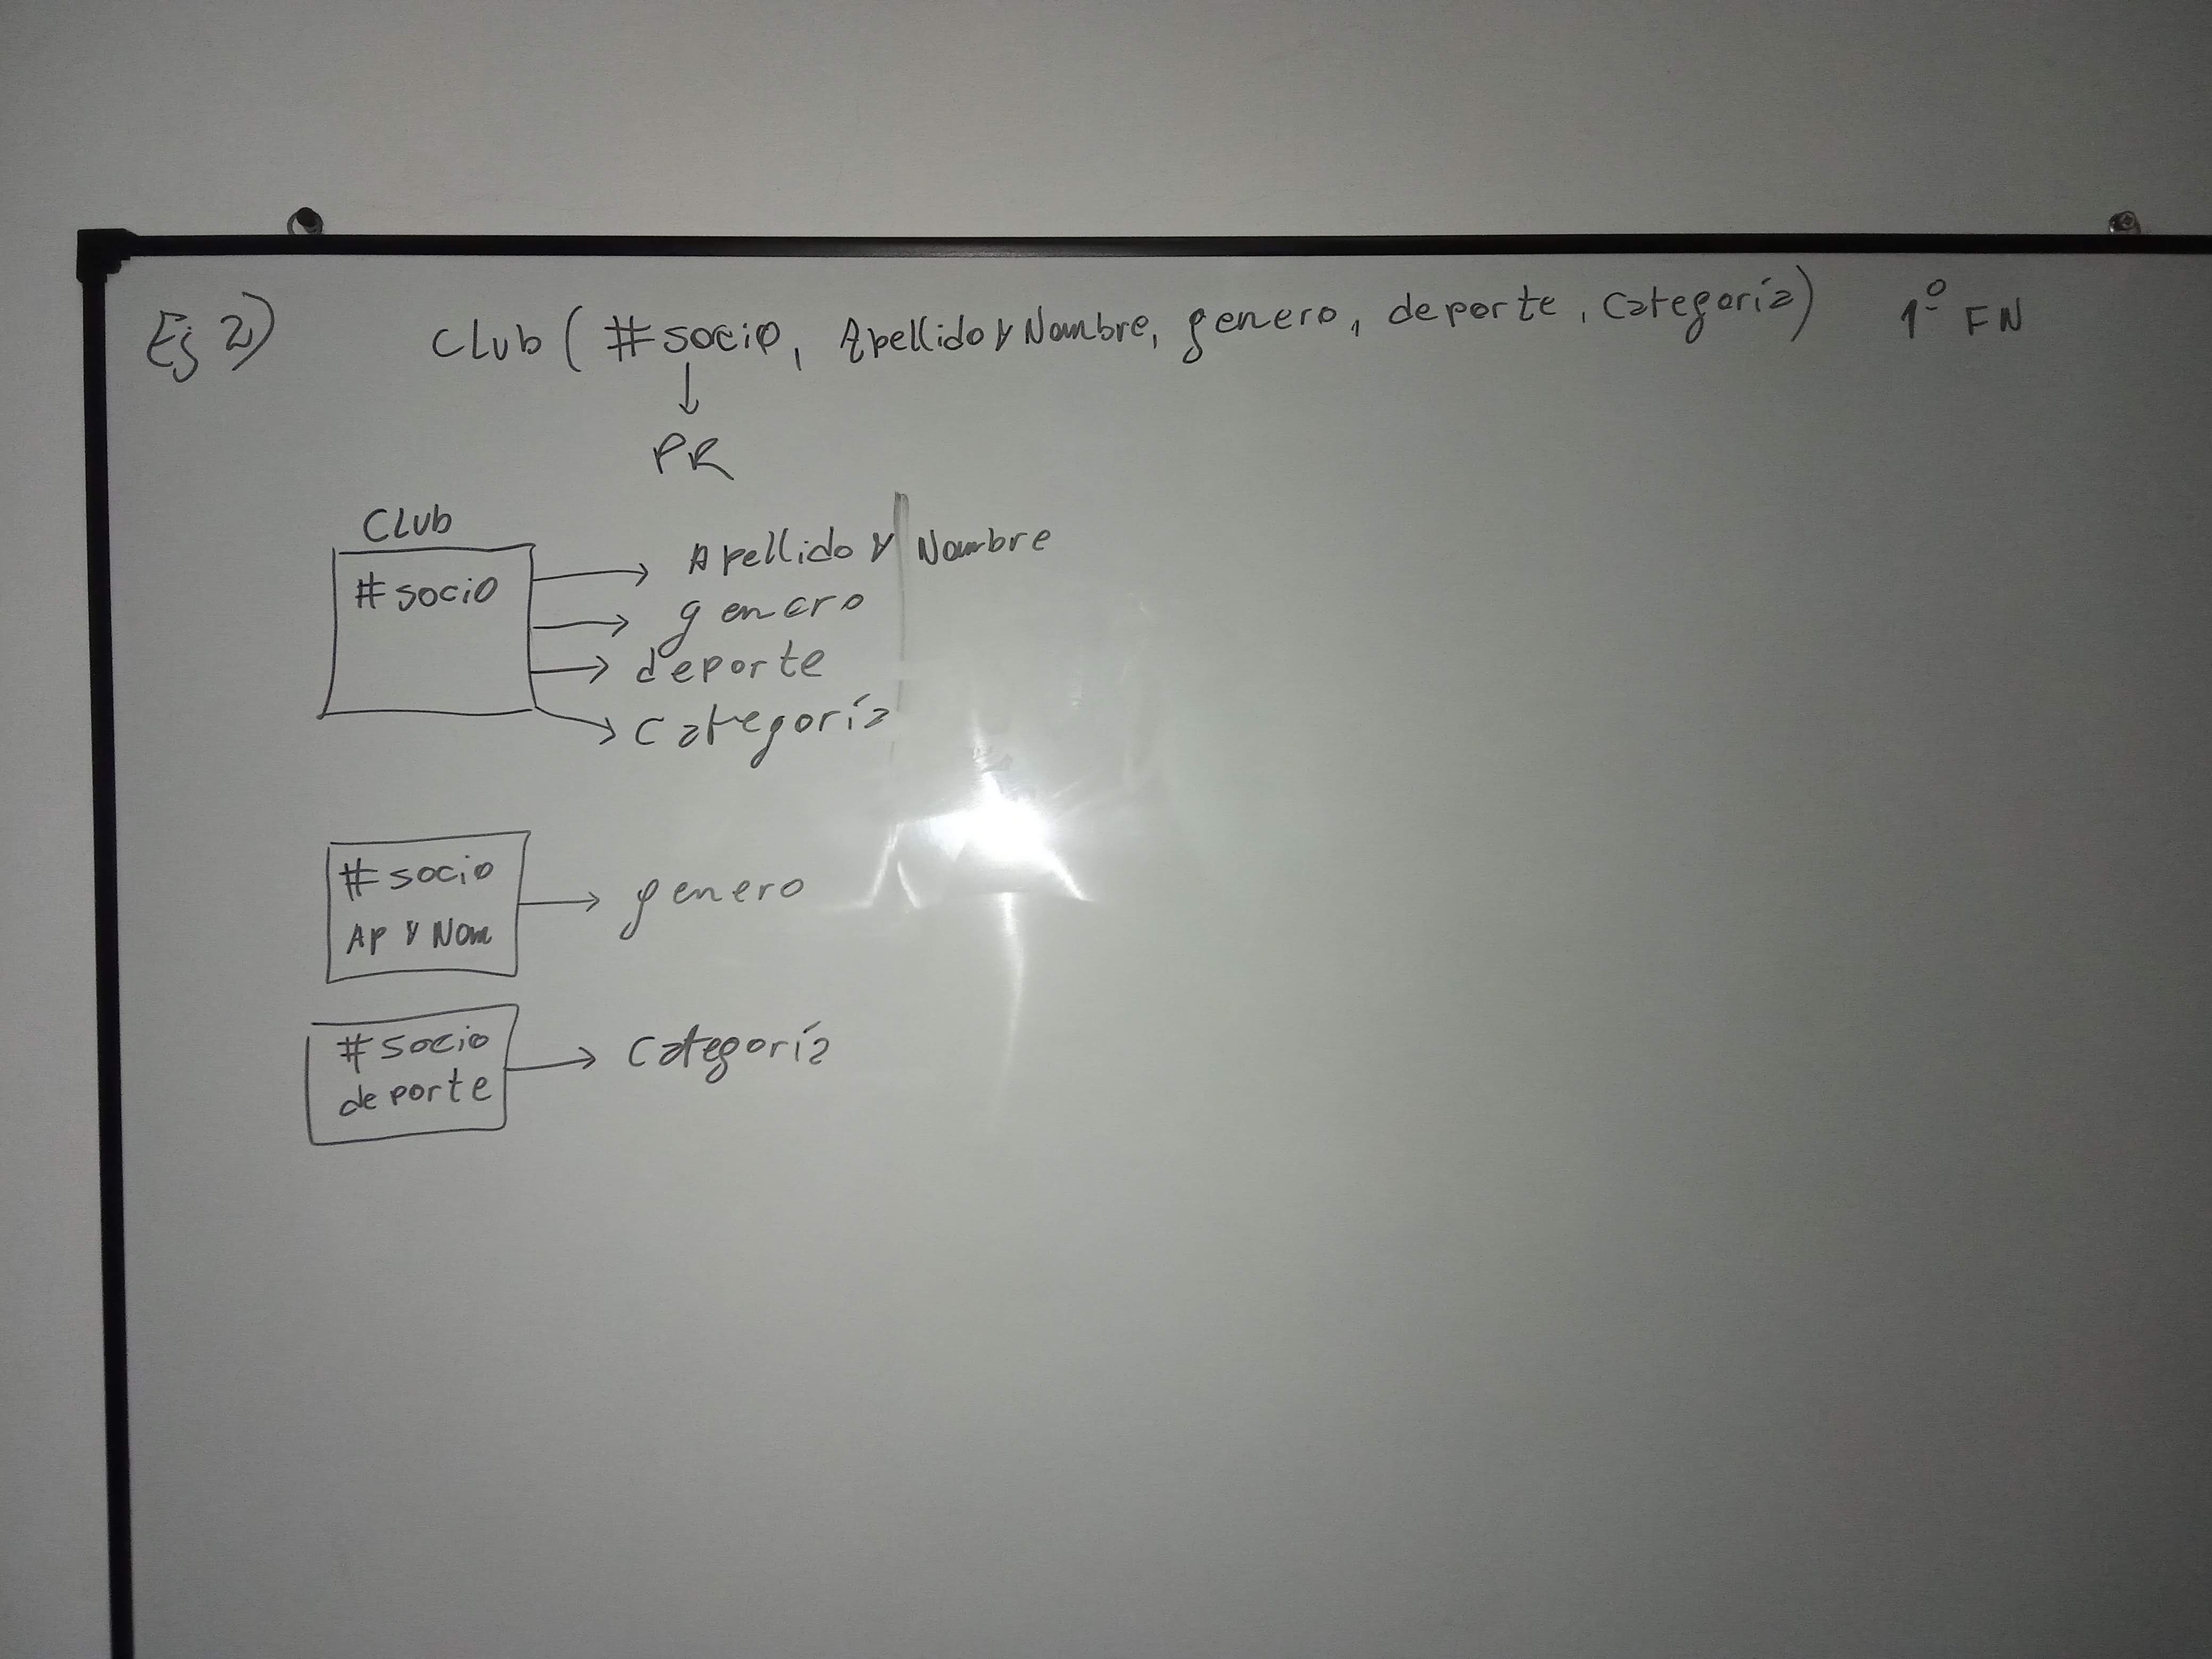 Ej 2) Club ( #socio, Apellido y Nombre, genero, deporte, categoría) 1º FN
PR
Club
#socio
Apellido y Nombre
genero
deporte
categoría
#socio
Ap y Nom
genero
#socio
deporte
categoría